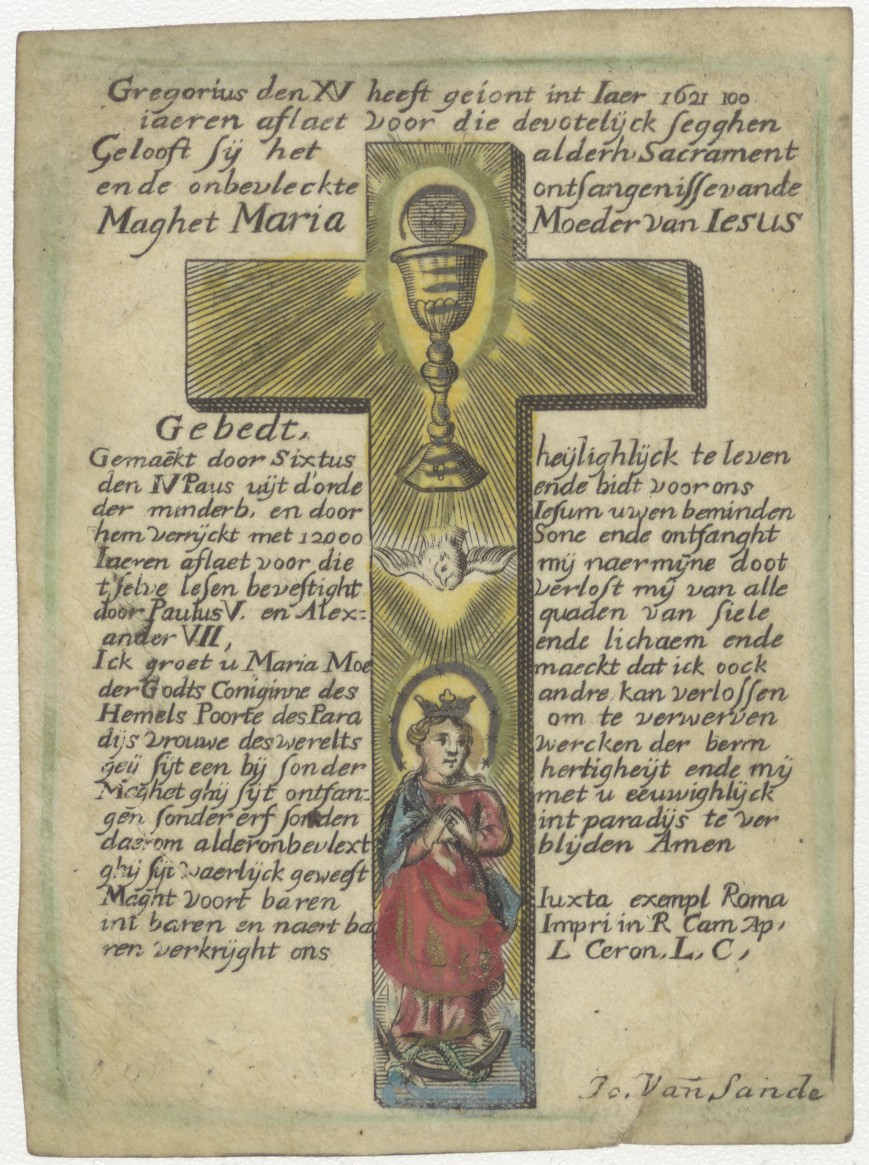 Gregorius den XV heeft geiont int Iaer 1621 100
iaeren aflaet voor die devotelijck segghen
Gelooft sij het alderh. Sacrament
ende onbevleckte ontfangenisse vande
Maghet Maria Moeder van Iesus
Gebedt,
Gemaekt door Sixtus
den IV Paus uijt d'orde
der minderb, en door
hem verrijckt met 12000
Iaeren aflaet voor die
t'selve lesen bevestight
door Paulus V. en Alex=
ander VII,
Ick groet u Maria Moe
der Godts Coniginne des
Hemels Poorte des Para
dijs vrouwe des werelts
geij sijt een bij sonder
Maghet ghij sijt ontfan=
gen sonder erf sonden
daerom alderonbevlext
ghij sijt waerlijck geweest
Maght voort baren
int baren en naert ba
ren verkrijght ons
heijlighlijck te leven
ende bidt voor ons
Iesum uwen beminden
Sone ende ontfanght
mij naer mijne doot
verlost mij van alle
quaden van siele
ende lichaem ende
maeckt dat ick oock
andre kan verlossen
om te verwerven
wercken der berm
hertigheijt ende mij
met u eeuwighlijck
int paradijs te ver
blijden Amen
Iuxta exempl Roma
Impri in R Cam Ap,
L Ceron, L, C,
Jo. Van Sande